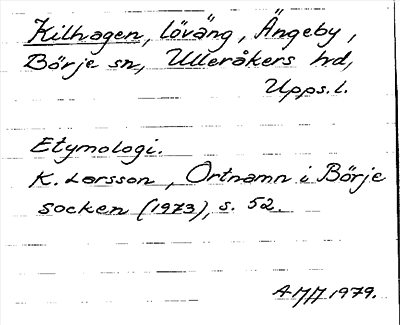 Kilhagen, löväng, Ängeby,
Börje sn, Ulleråkers hd,
Upps.l.
Etymologi.
K. Larsson, Ortnamn i Börje
socken (1973), s. 52.
1979.